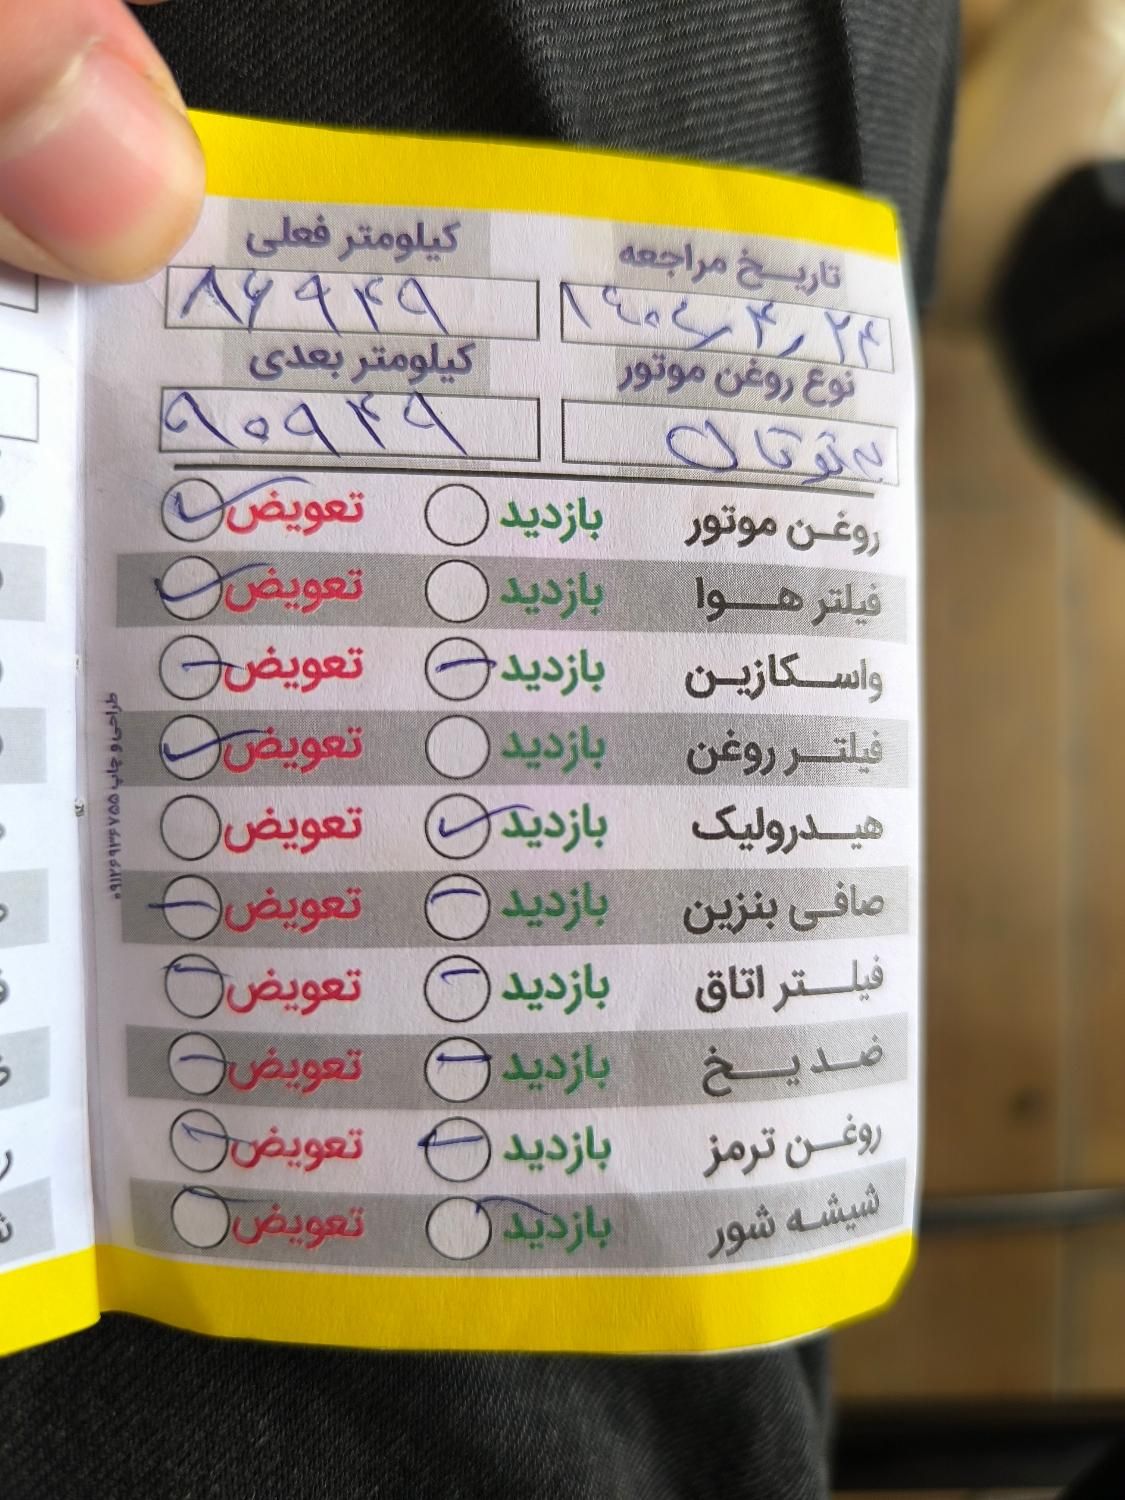 تاریخ مراجعه کیلومتر فعلی
۱۴۰۴٫۴٫۲۴ ۸۶۹۴۹
نوع روغن موتور کیلومتر بعدی
توتال ۹۰۹۴۹
روغن موتور بازدید تعویض
فیلتر هوا بازدید تعویض
واسکازین بازدید تعویض
فیلتر روغن بازدید تعویض
هیدرولیک بازدید تعویض
صافی بنزین بازدید تعویض
فیلتر اتاق بازدید تعویض
ضد یخ بازدید تعویض
روغن ترمز بازدید تعویض
شیشه شور بازدید تعویض
طراحی و چاپ ۰۹۱۲۶۹۳۶۷۵۵